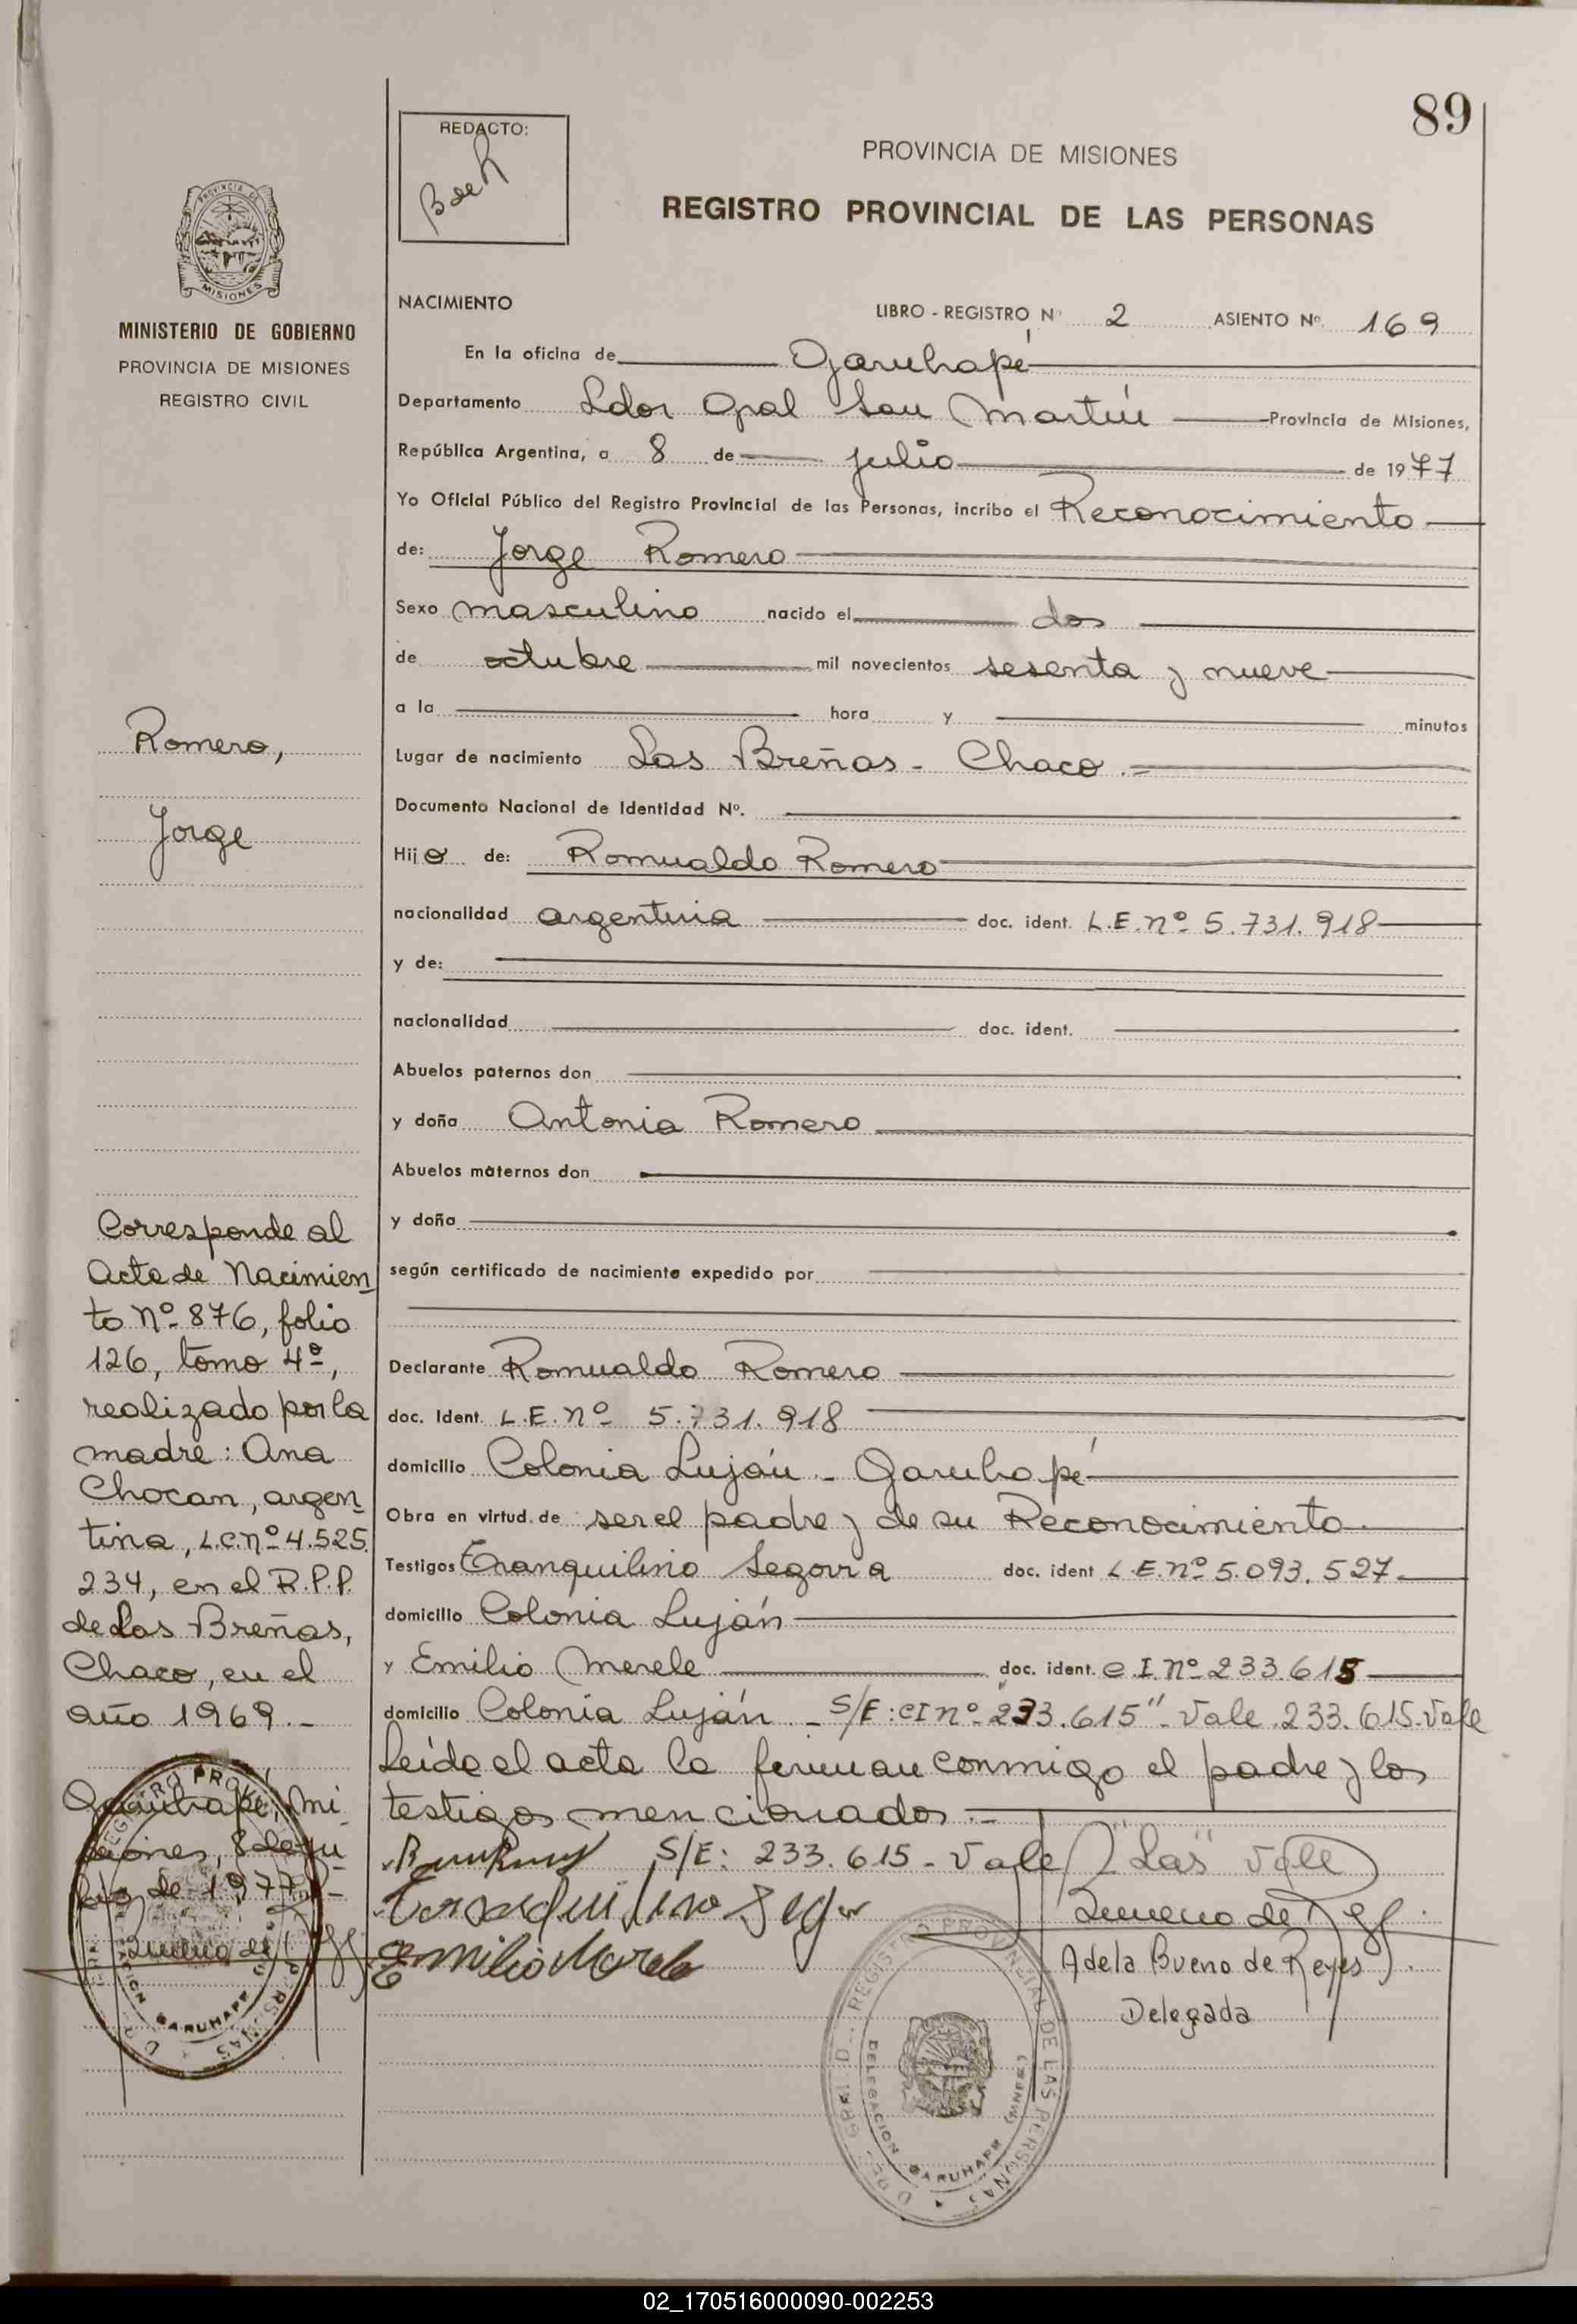 89
REDACTO:
BdeR
PROVINCIA DE MISIONES
REGISTRO PROVINCIAL DE LAS PERSONAS
PROVINCIA DE
MISIONES
MINISTERIO DE GOBIERNO
PROVINCIA DE MISIONES
REGISTRO CIVIL
Romero,
Jorge
Corresponde al
Acta de Nacimien
to Nº 876, folio
126, tomo 4º,
realizado por la
madre: Ana
Chocan, argen
tina, L.C.nº 4.525.
234, en el R.P.P.
de Las Breñas,
Chaco, en el
año 1969.-
Garuhapé, Mi
siones, 8 de ju-
lio de 1977.-
NACIMIENTO
LIBRO - REGISTRO Nº 2 ASIENTO Nº 169
En la oficina de Garuhapé
Departamento Ldor Gral San Martín Provincia de Misiones,
República Argentina, a 8 de julio de 1977
Yo Oficial Público del Registro Provincial de las Personas, incribo el Reconocimiento
de: Jorge Romero
Sexo masculino nacido el dos
de octubre mil novecientos sesenta y nueve
a la hora y minutos
Lugar de nacimiento Las Breñas - Chaco.=
Documento Nacional de Identidad Nº.
Hijo de: Romualdo Romero
nacionalidad argentina doc. ident. L.E.nº 5.731.918
y de:
nacionalidad doc. ident.
Abuelos paternos don
y doña Antonia Romero
Abuelos maternos don
y doña
según certificado de nacimiento expedido por
Declarante Romualdo Romero
doc. Ident. L.E.nº 5.731.918
domicilio Colonia Luján - Garuhapé
Obra en virtud de ser el padre y de su Reconocimiento
Testigos Tranquilino Segovia doc. ident L.E.nº 5.093.527
domicilio Colonia Luján
y Emilio Merele doc. ident. C.I.nº 233.615
domicilio Colonia Luján - S/E: CI nº "233.615" - Vale. 233.615. Vale
Leída el acta la firman conmigo el padre y los
testigos mencionados.=
S/E: 233.615 - Vale "Las" Vale
Emilio Morele
Bueno de
Adela Bueno de Reyes
Delegada
REGISTRO PROVINCIAL DE LAS PERSONAS
DELEGACION GARUHAPE (MNES)